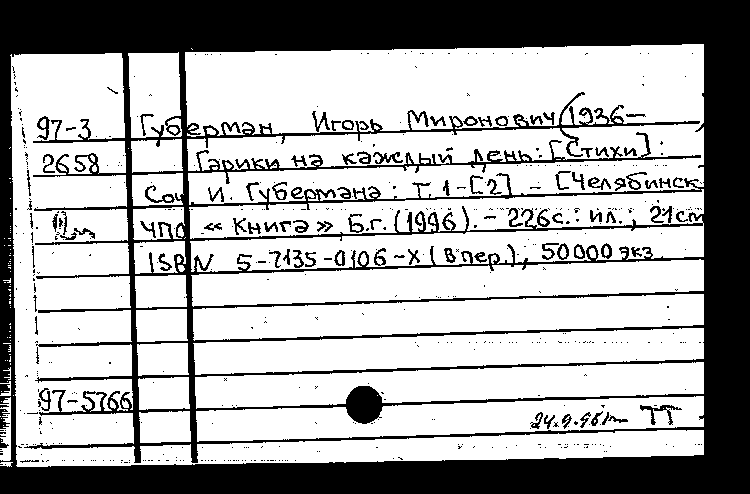 97-3 Губерман, Игорь Миронович (1936—
2658 Гарики на каждый день: [Стихи]:
Соч. И. Губермана: Т. 1-[2]. - [Челябинск
ЧПО «Книга», Б.г. (1996). - 226с.: ил.; 21cm
ISBN 5-7135-0106-X (в пер.), 50000 экз.
97-5766
24.9.96 ТТ